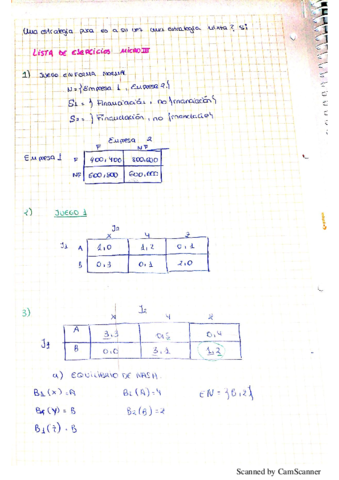 Una estrategia pura es a su vez una estrategia mixta?, si
LISTA DE EJERCICIOS MICRO III
1) JUEGO EN FORMA NORMAL
N = {Empresa 1, Empresa 2}
S1 = } Financiación, no financiación}
S2 = } Financiación, no financiación}
Empresa 2
F NF
Empresa 1 F 400, 400
NF 600, 600
2) JUEGO 1
J2
x y z
J1 A 1,2 0,1
B 0,3 0,1 2,0
3) J2
x y z
J1 A 3,3 0,4
B 0,0 3,1
a) EQUILIBRIO DE NASH.
B1(x) = A B2(A) = y EN = {B,z}
B1(y) = B B2(B) = z
B1(z) = B
Scanned by CamScanner